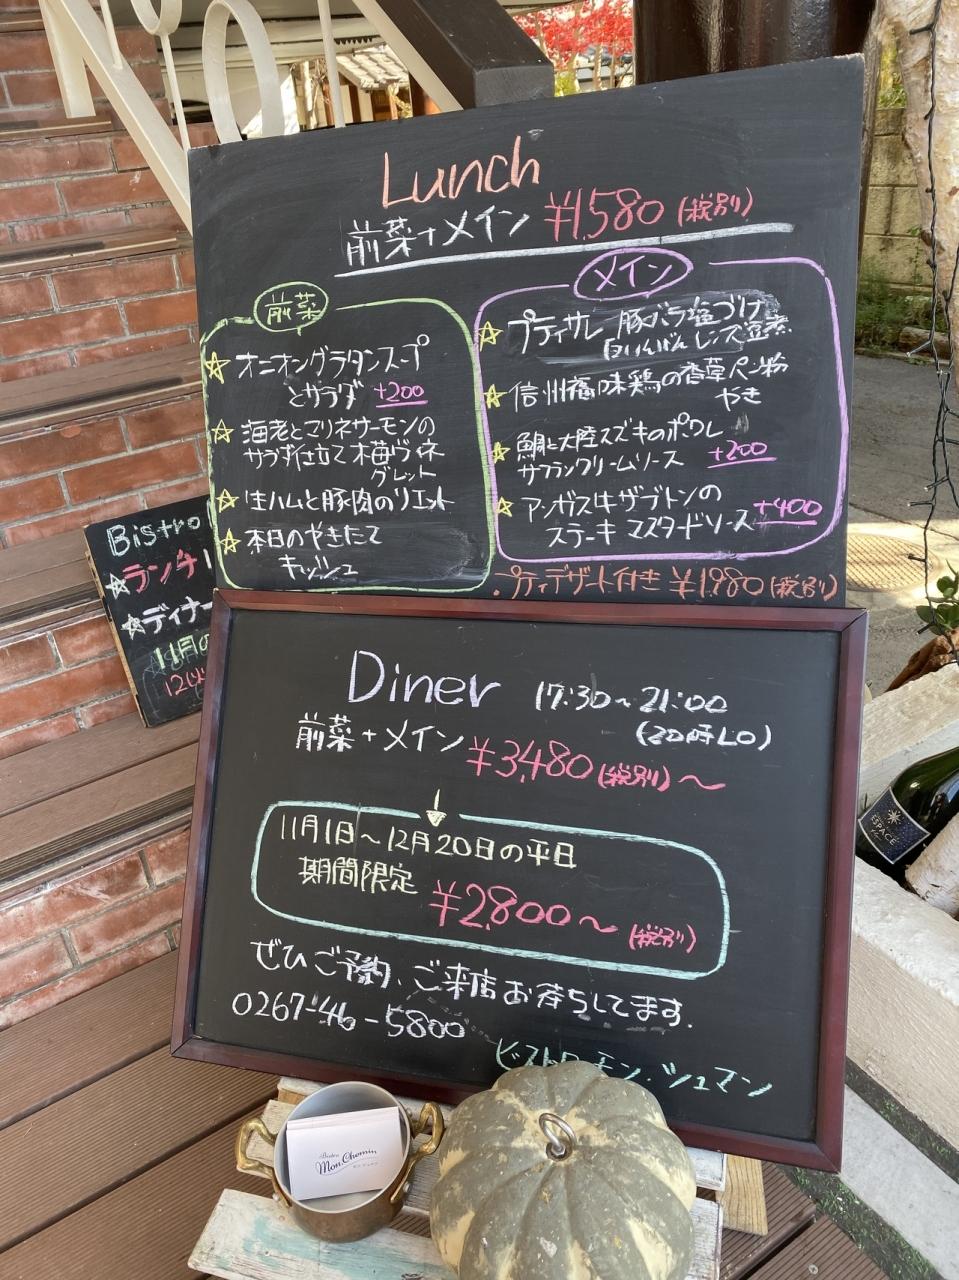 Lunch
前菜+メイン ¥1,580 (税別)
前菜
☆オニオングラタンスープ
とサラダ +200
☆海老とマリネサーモンの
サラダ仕立て 木苺ヴィネ
グレット
☆生ハムと豚肉のリエット
☆本日のやきたて
キッシュ
メイン
☆プティサレ 豚バラ塩づけ
白いんげん レンズ豆煮
☆信州福味鶏の香草パン粉
やき
☆鯛と大陸スズキのポワレ
サフランクリームソース +200
☆アンガス牛ザブトンの
ステーキ マスタードソース +400
・プティデザート付き ¥1,980 (税別)
Bistro
☆ランチ
☆ディナー
11月の
Diner 17:30~21:00
(20時LO)
前菜+メイン ¥3,480 (税別)~
↓
11月1日~12月20日の平日
期間限定 ¥2,800~ (税別)
ぜひご予約、ご来店お待ちしてます.
0267-46-5800
ビストロ・モン・シュマン
Bistro
Mon Chemin
ESPACE